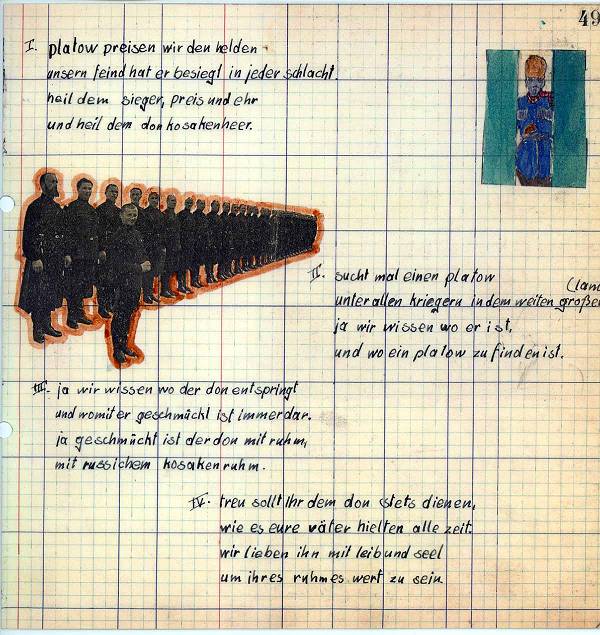 49
I. platow preisen wir den helden
unsern feind hat er besiegt in jeder schlacht.
heil dem sieger, preis und ehr
und heil dem donkosakenheer.
II. sucht mal einen platow
(land
unter allen kriegern in dem weiten großen
ja wir wissen wo er ist,
und wo ein platow zu finden ist.
III. ja wir wissen wo der don entspringt
und womit er geschmückt ist immerdar.
ja geschmückt ist der don mit ruhm,
mit russichem kosakenruhm.
IV. treu sollt ihr dem don stets dienen,
wie es eure väter hielten alle zeit.
wir lieben ihn mit leib und seel
um ihres ruhmes wert zu sein